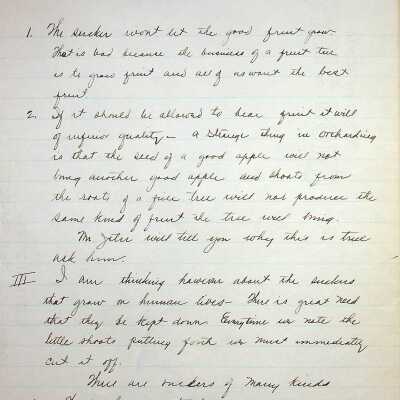 1. The sucker wont let the good fruit grow.
That is bad because the business of a fruit tree
is to grow fruit and all of us want the best
fruit
2. If it should be allowed to bear fruit it will
of inferior quality - a strange thing in orcharding
is that the seed of a good apple will not
bring another good apple and shoots from
the roots of a fine tree will not produce the
same kind of fruit the tree will bring.
Mr Jeter will tell you why this is true
ask him.
III I am thinking however about the suckers
that grow on human lives - There is great need
that they be kept down. Everytime we note the
little shoots putting forth we must immediately
cut it off.
There are suckers of many kinds